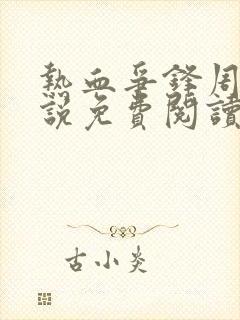 熱血爭鋒周
說免費閱讀
古小炎